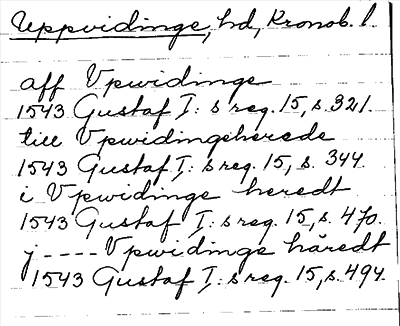 Uppvidinge, hd, Kronob. l.
aff Vpwidinge
1543 Gustaf I: s reg. 15, s. 321.
till Vpwidingeherede
1543 Gustaf I: s reg. 15, s. 344.
i Vpwidinge heredt
1543 Gustaf I: s reg. 15, s. 470.
j ---- Vpwidinge häredt
1543 Gustaf I: s reg. 15, s. 494.